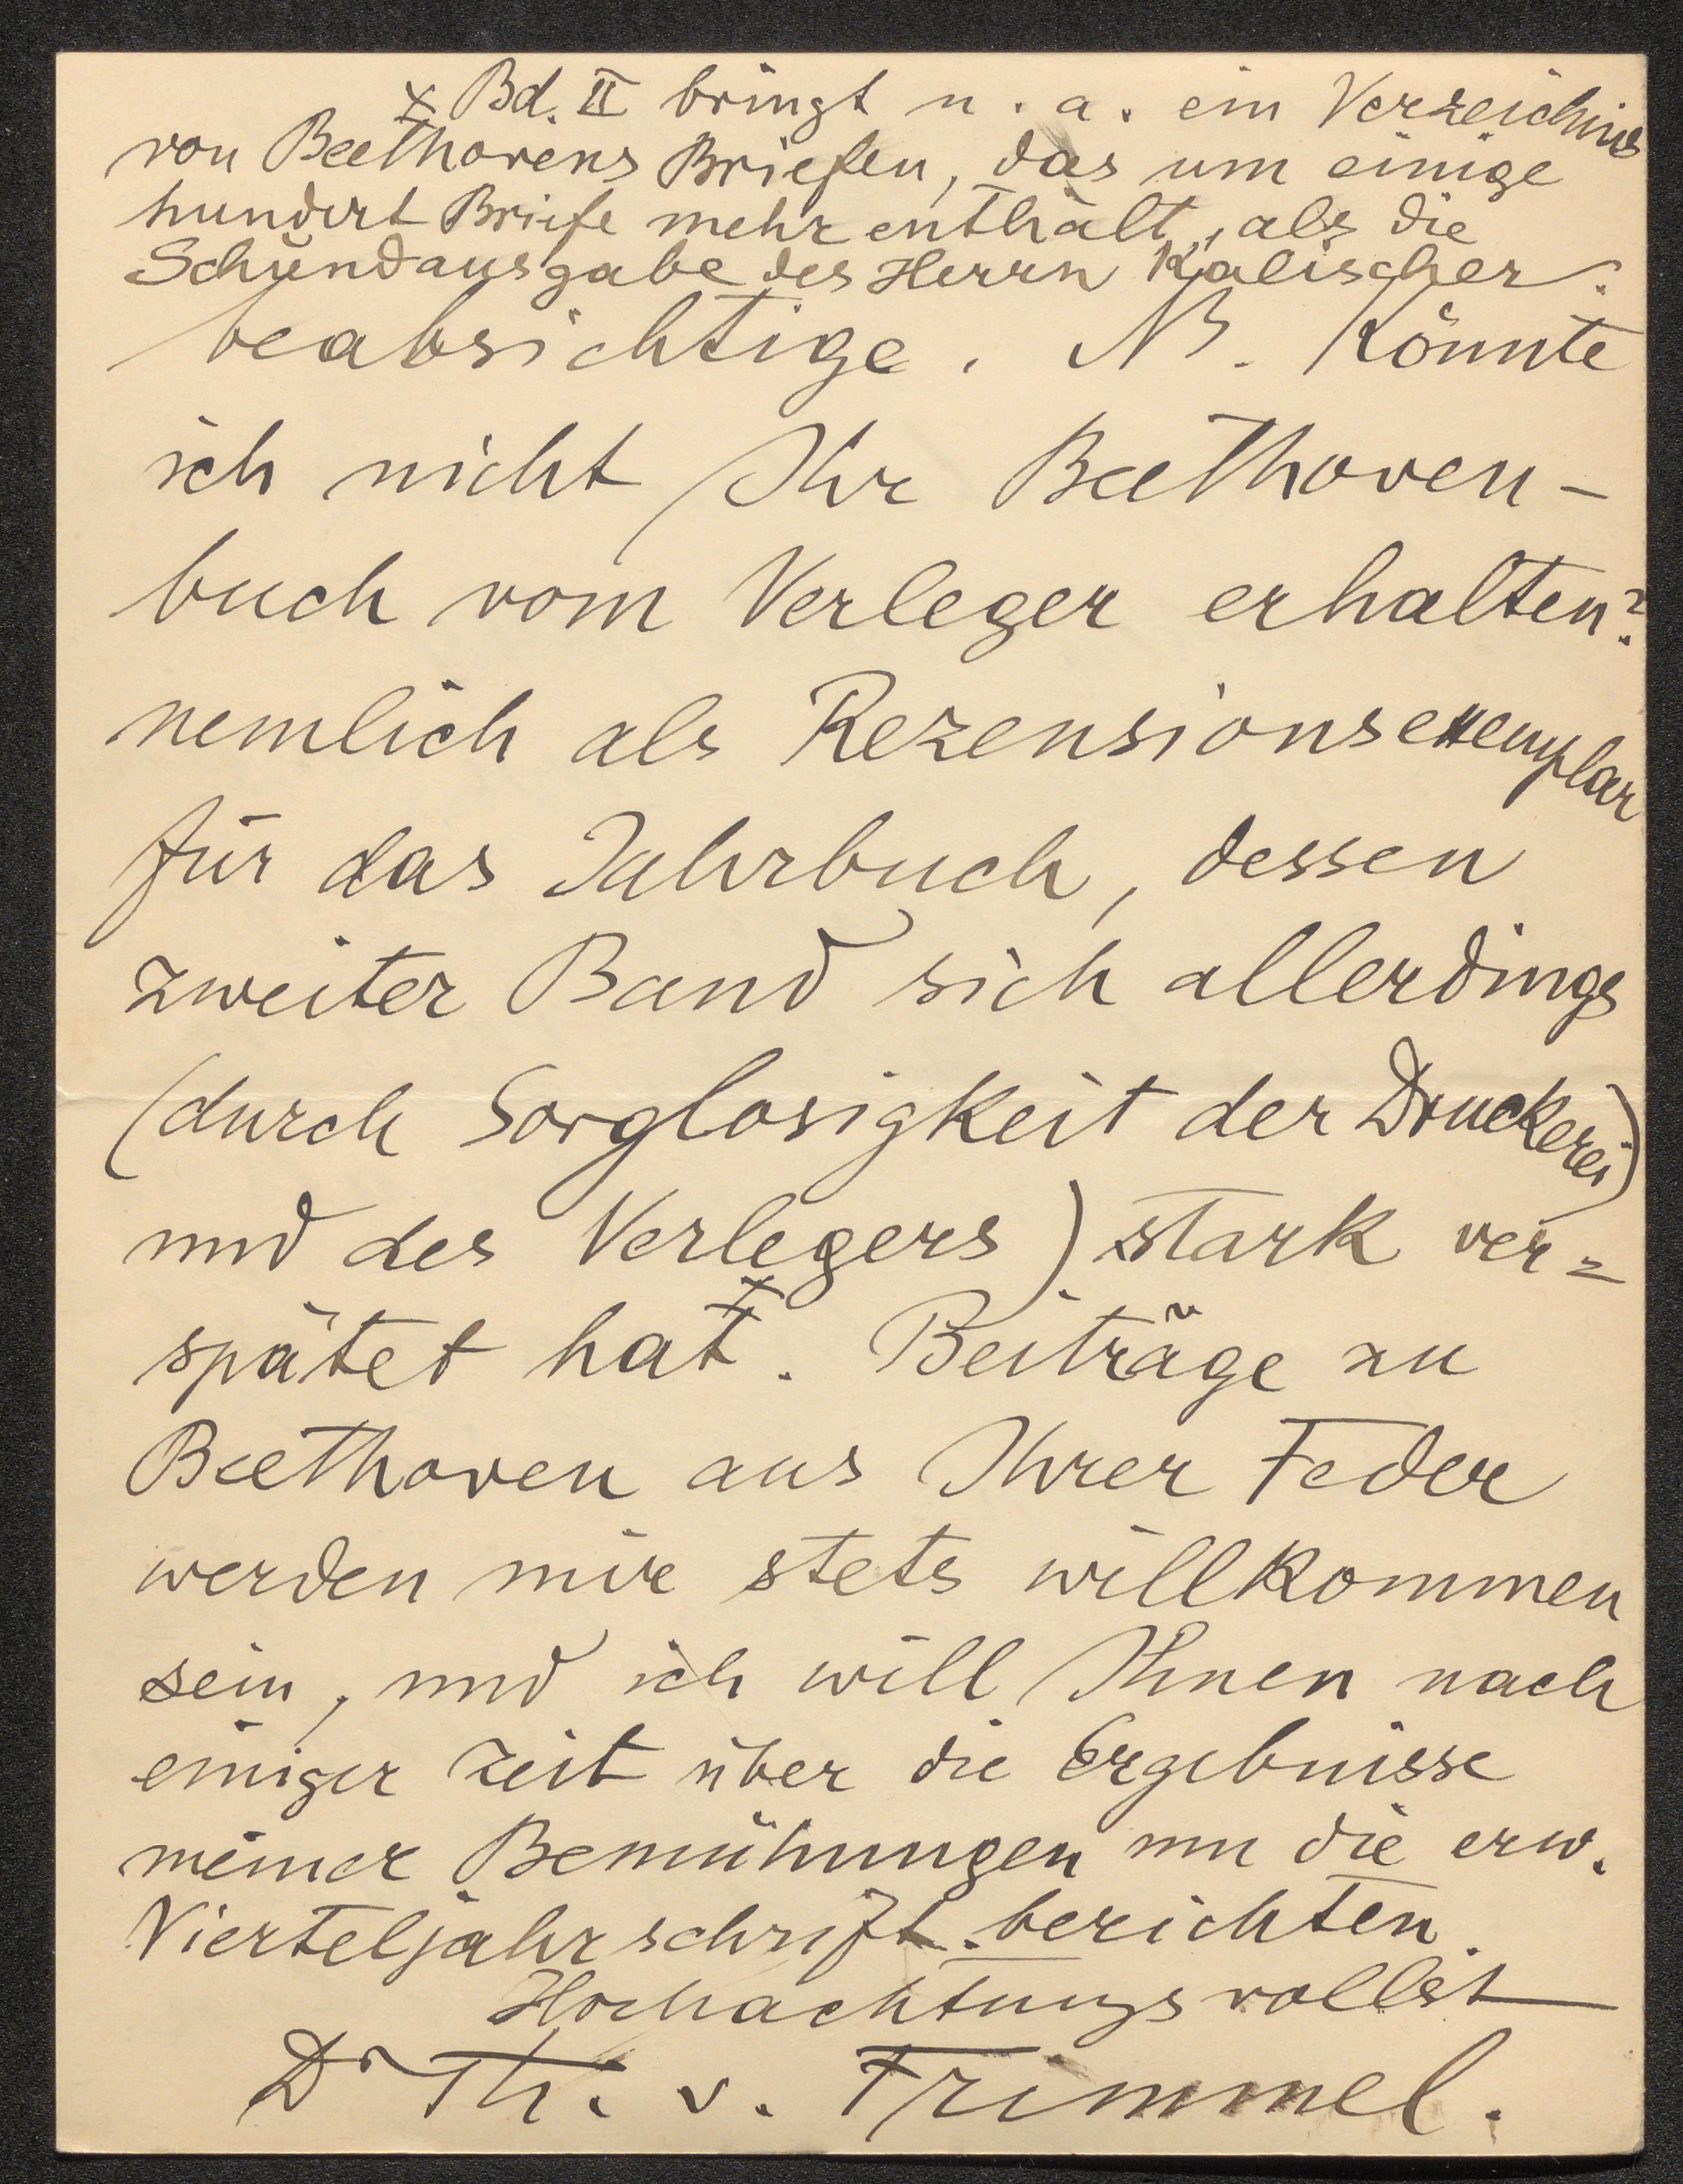 x Bd. II bringt u. a. ein Verzeichnis
von Beethovens Briefen, das um einige
hundert Briefe mehr enthält, als die
Schundausgabe des Herrn Kalischer.
beabsichtige. NB. Könnte
ich nicht Ihr Beethoven-
buch vom Verleger erhalten?
nemlich als Rezensionsexemplar
für das Jahrbuch, dessen
zweiter Band sich allerdings
(durch Sorglosigkeit der Druckerei)
und des Verlegers) stark ver=
spätet hat x. Beiträge zu
Beethoven aus Ihrer Feder
werden mir stets willkommen
sein, und ich will Ihnen nach
einiger Zeit über die Ergebnisse
meiner Bemühungen um die erw.
Vierteljahrschrift berichten.
Hochachtungsvollst
Dr Th. v. Frimmel.